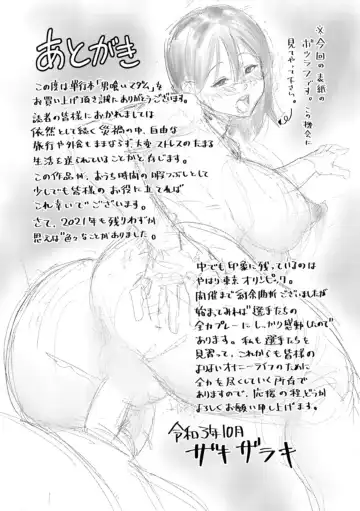 ※今回の表紙の
ボツラフです。この機会に
見てやって下さい。
あとがき
この度は単行本「男喰いマダム」を
お買い上げ頂き誠にありがとうございます。
読者の皆様におかれましては
依然として続く災禍の中、自由な
旅行や外食もままならず大変ストレスのたまる
生活を送られていることかと存じます。
この作品が、おうち時間の暇つぶしとして
少しでも皆様のお役に立てれば
これ幸いでございます。
さて、2021年も残りわずか
思えば色々なことがありました。
中でも印象に残っているのは
やはり東京オリンピック。
開催まで紆余曲折ございましたが
始まってみれば選手たちの
全力プレーにしっかり感動したので
あります。私も選手たちを
見習って、これからも皆様の
よりよいオナニーライフのために
全力を尽くしていく所存で
ありますので、応援の程、どうか
よろしくお願い申し上げます。
令和3年10月
ザキザラキ